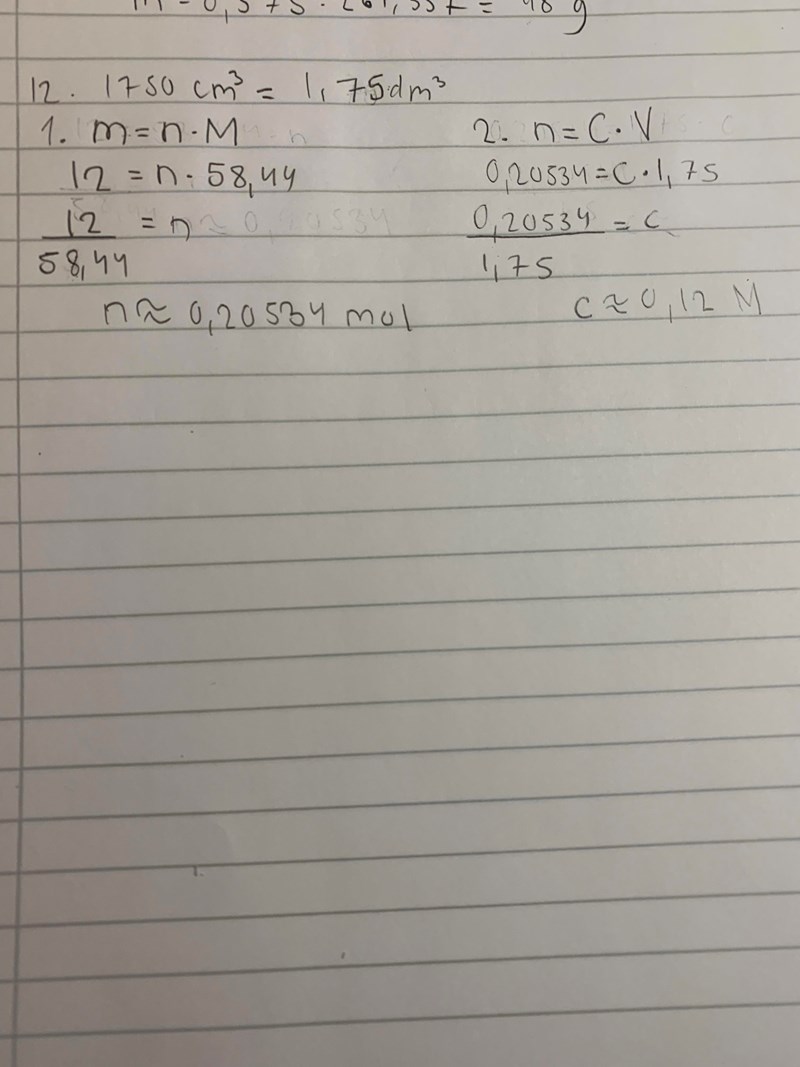 12. 1750 cm³ = 1,75dm³
1. m=n·M
12 = n· 58,44
12 = n
58,44
n≈ 0,20534 mol
2. n=C·V
0,20534=C·1,75
0,20534 = C
1,75
C≈0,12 M